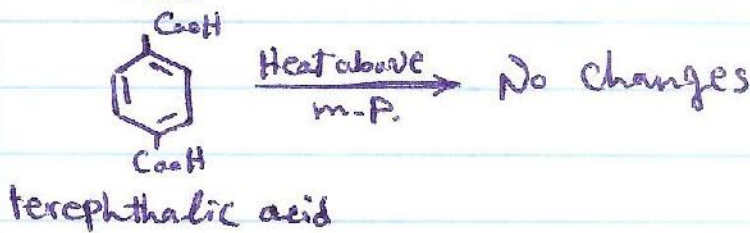 COOH
Heat above
m.P.
No changes
COOH
terephthalic acid